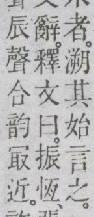 者。溯其始言之。
文辭。釋文曰。振恆、
辰聲合韵冣近。